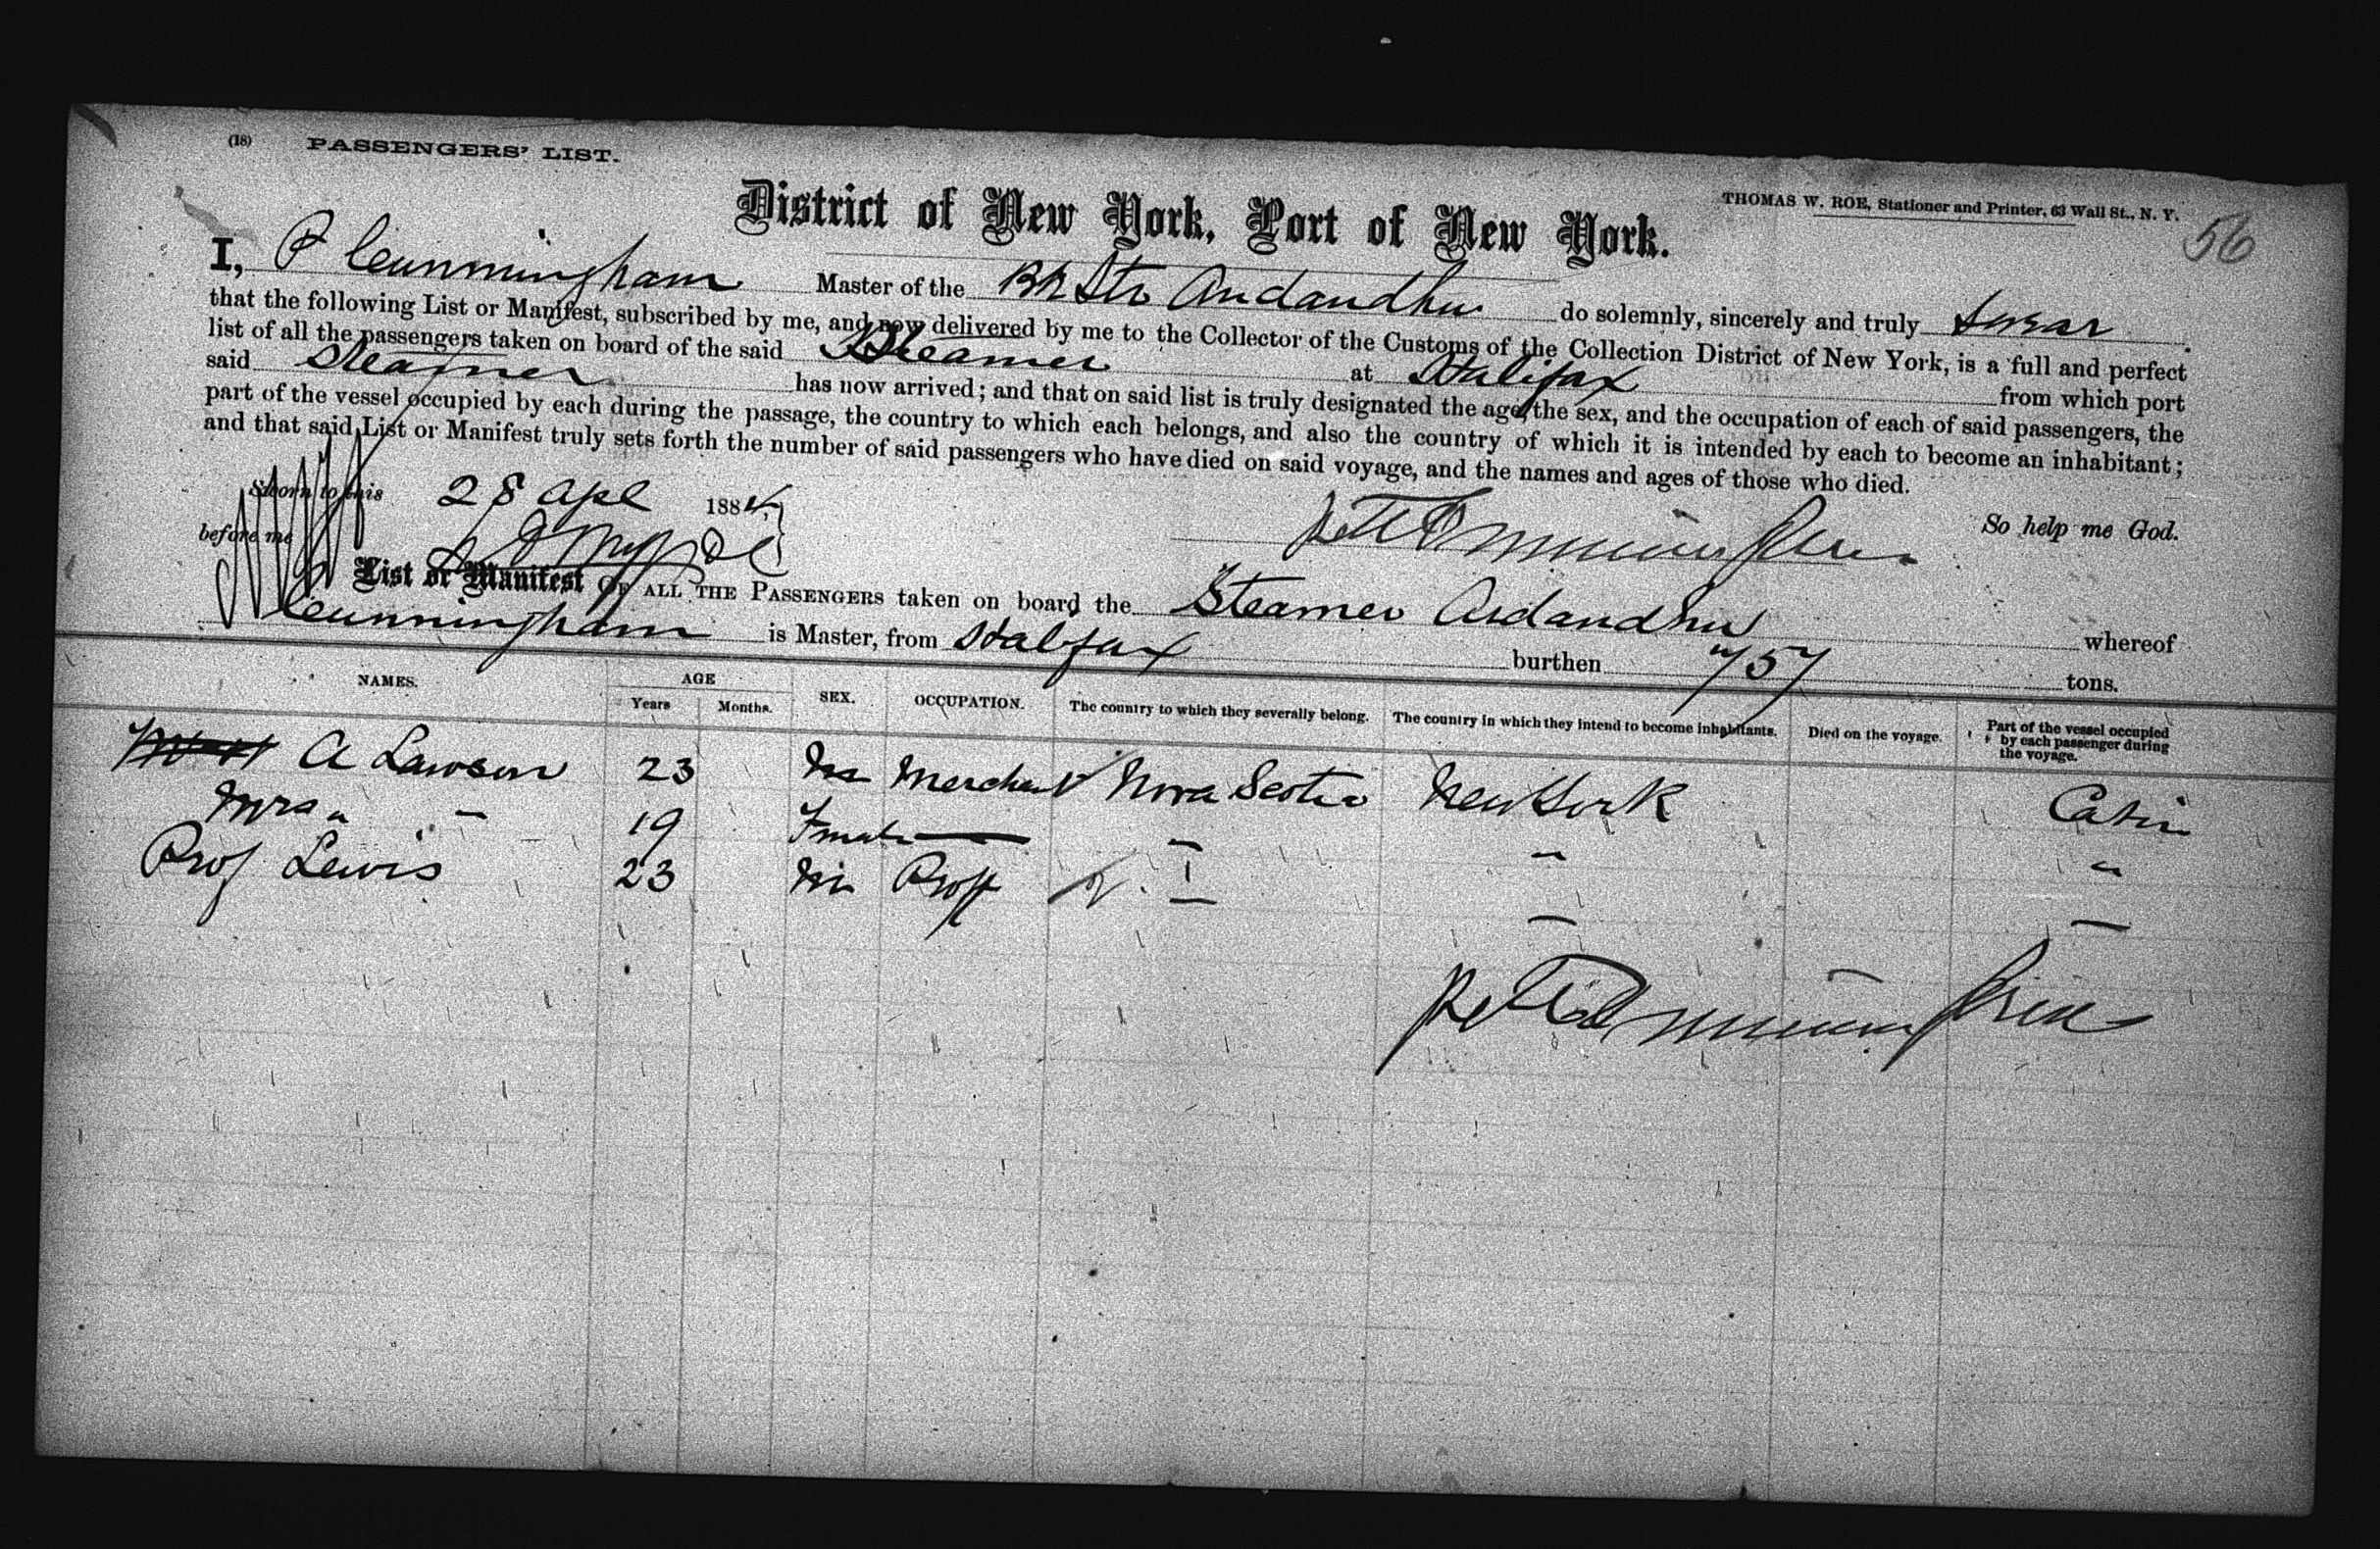 (18) PASSENGERS' LIST.
THOMAS W. ROE, Stationer and Printer, 63 Wall St., N. Y.
56
District of New York, Port of New York.
I, P Cunningham Master of the Br Str Ardandhu do solemnly, sincerely and truly swear
that the following List or Manifest, subscribed by me, and now delivered by me to the Collector of the Customs of the Collection District of New York, is a full and perfect
list of all the passengers taken on board of the said Steamer at Halifax from which port
said Steamer has now arrived; and that on said list is truly designated the age, the sex, and the occupation of each of said passengers, the
part of the vessel occupied by each during the passage, the country to which each belongs, and also the country of which it is intended by each to become an inhabitant;
and that said List or Manifest truly sets forth the number of said passengers who have died on said voyage, and the names and ages of those who died.
So help me God.
Sworn to this 28 Apl 1884
before me
List or Manifest OF ALL THE PASSENGERS taken on board the Steamer Ardandhu whereof
Cunningham is Master, from Halifax burthen 757 tons.
NAMES. AGE Years Months. SEX. OCCUPATION. The country to which they severally belong. The country in which they intend to become inhabitants. Died on the voyage. Part of the vessel occupied by each passenger during the voyage.
A Lawson 23 M Merchant Nova Scotia New York Cabin
Mrs " " 19 Female — " " "
Prof Lewis 23 M Proff — — —